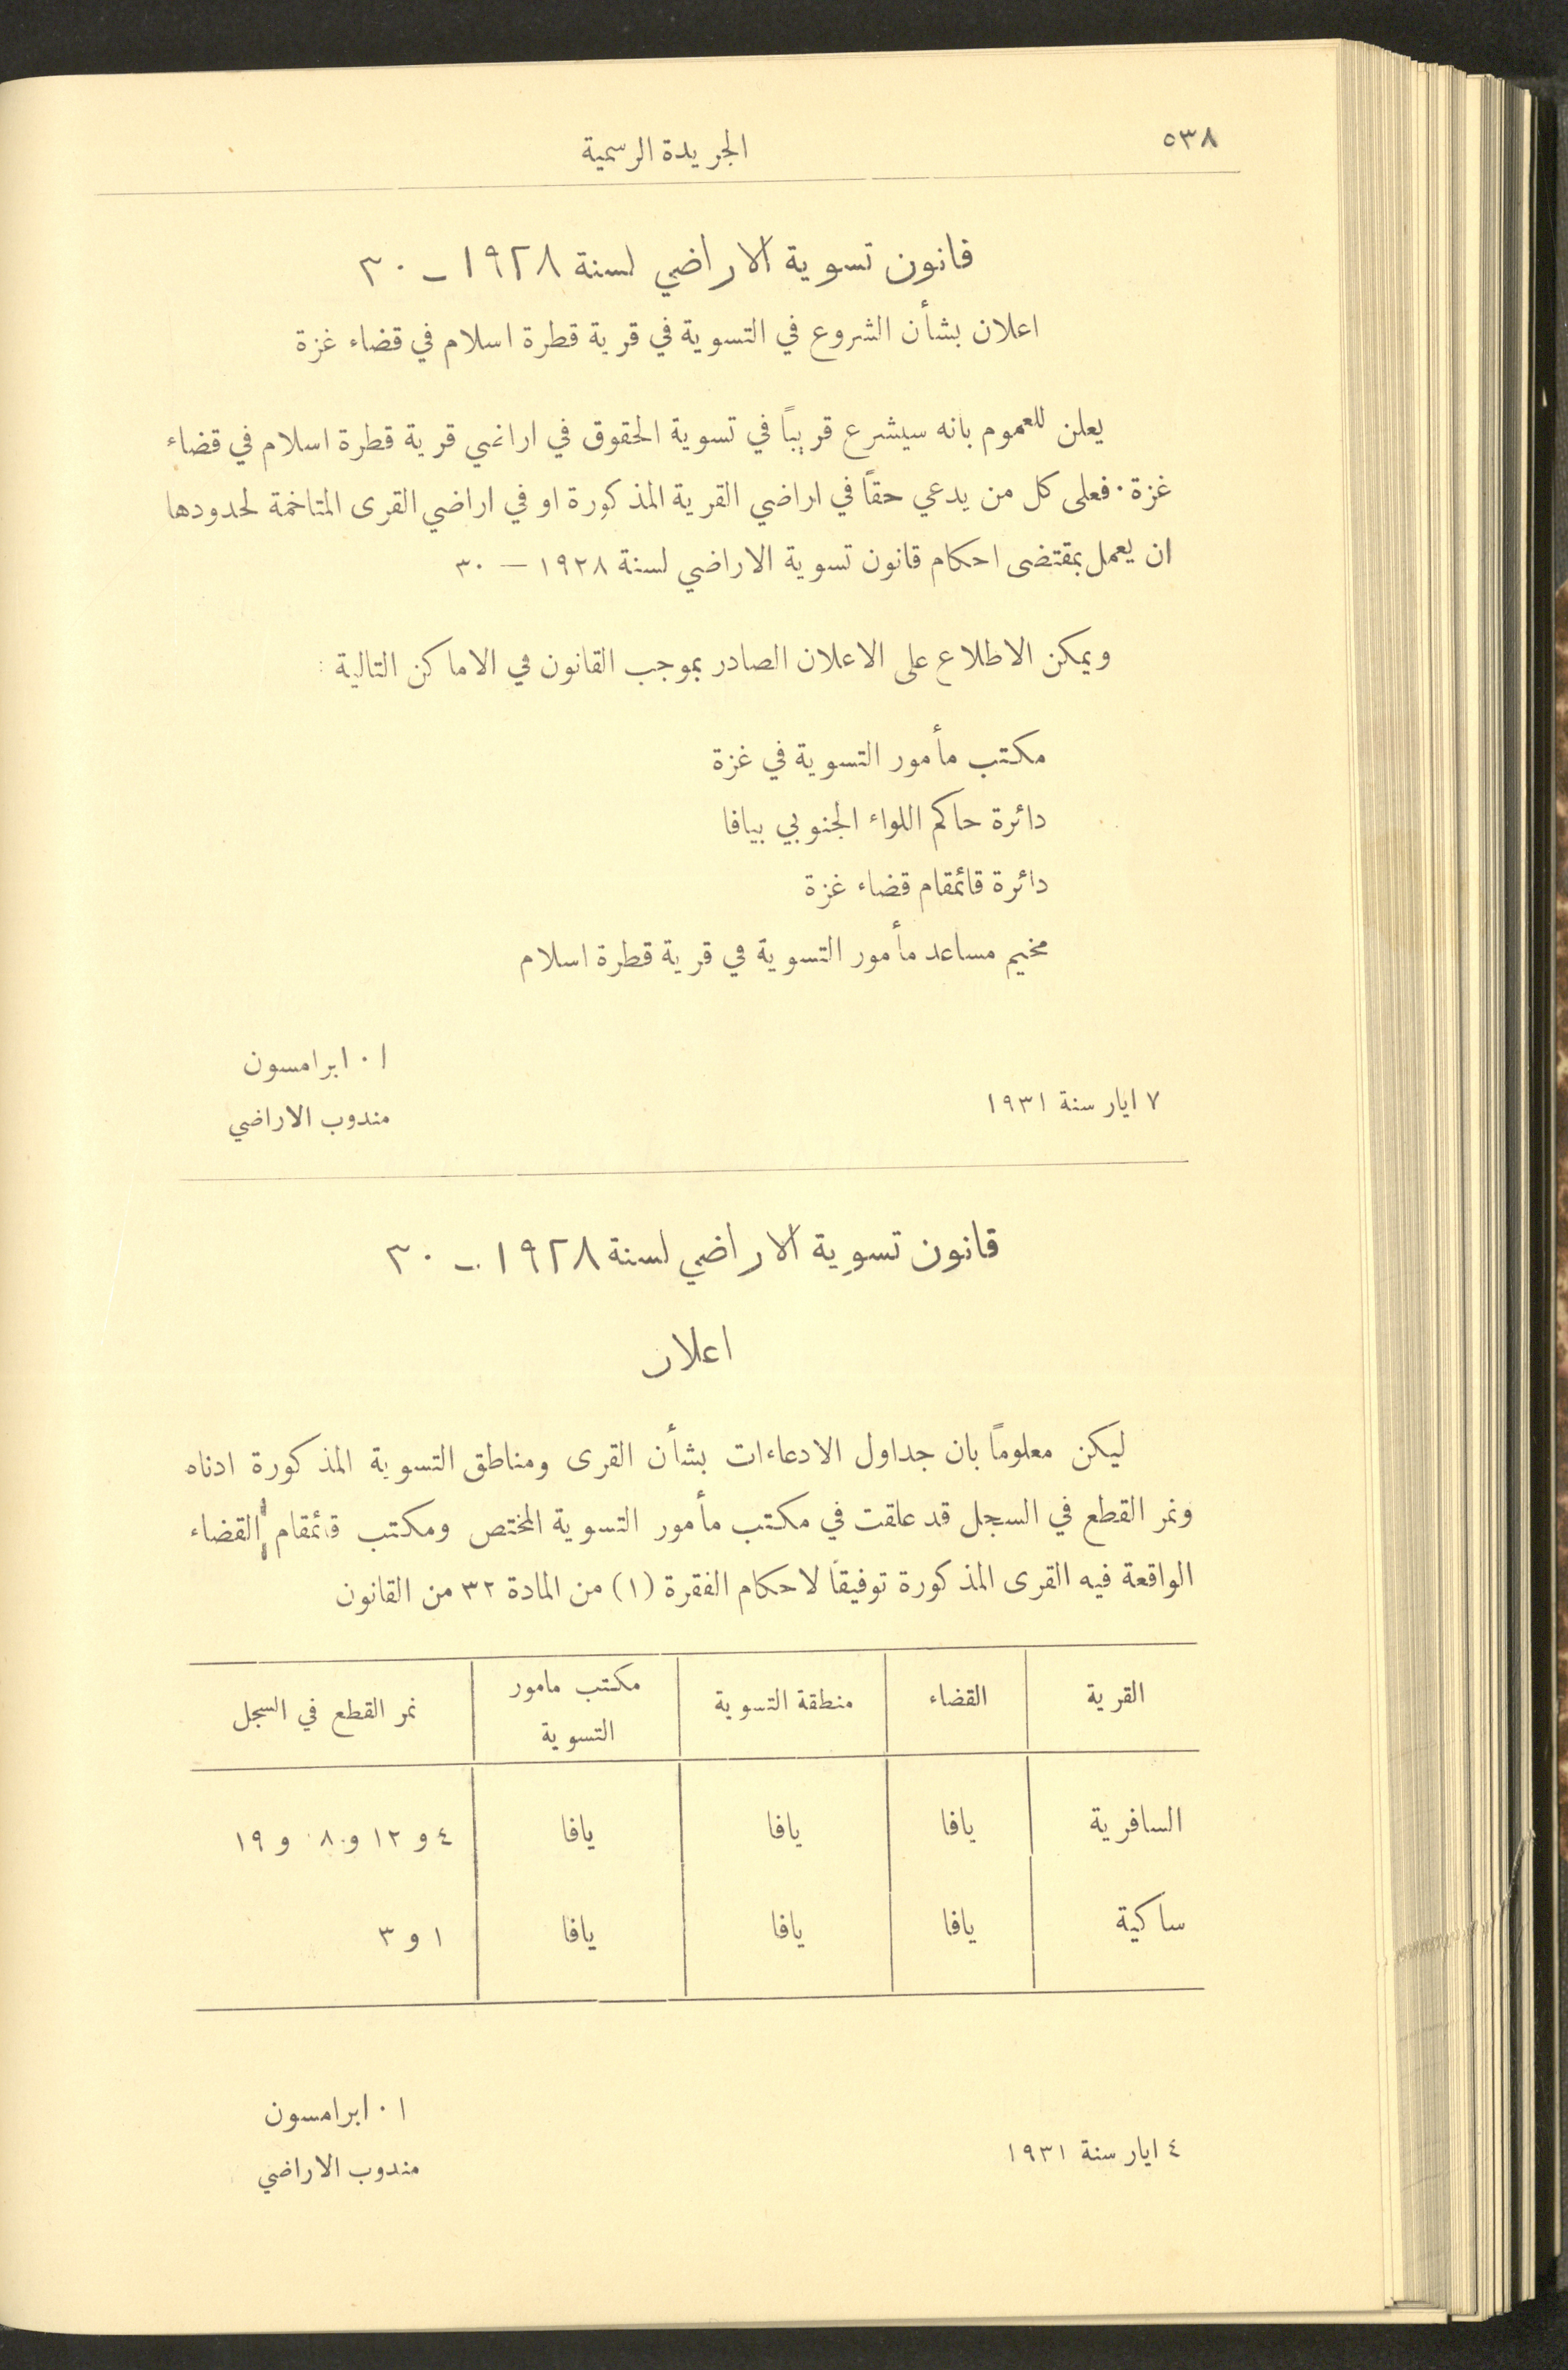 ٥٣٨
الجريدة الرسمية
قانون تسوية الاراضي لسنة ١٩٢٨ - ٣٠
اعلان بشأن الشروع في التسوية في قرية قطرة اسلام في قضاء غزة
يعلن للعموم بانه سيشرع قريباً في تسوية الحقوق في اراضي قرية قطرة اسلام في قضاء
غزة . فعلى كل من يدعي حقاً في اراضي القرية المذكورة او في اراضي القرى المتاخمة لحدودها
ان يعمل بمقتضى احكام قانون تسوية الاراضي لسنة ١٩٢٨ — ٣٠
ويمكن الاطلاع على الاعلان الصادر بموجب القانون في الاماكن التالية :
مكتب مأمور التسوية في غزة
دائرة حاكم اللواء الجنوبي بيافا
دائرة قائمقام قضاء غزة
مخيم مساعد مأمور التسوية في قرية قطرة اسلام
ا . ابرامسون
٧ ايار سنة ١٩٣١
مندوب الاراضي
قانون تسوية الاراضي لسنة ١٩٢٨ - ٣٠
اعلان
ليكن معلوماً بان جداول الادعاءات بشأن القرى ومناطق التسوية المذكورة ادناه
ونمر القطع في السجل قد علقت في مكتب مأمور التسوية المختص ومكتب قائمقام القضاء
الواقعة فيه القرى المذكورة توفيقاً لاحكام الفقرة (١) من المادة ٣٢ من القانون
القرية القضاء منطقة التسوية مكتب مامور التسوية نمر القطع في السجل
السافرية يافا يافا يافا ٤ و ١٢ و ٨ و ١٩
ساكية يافا يافا يافا ١ و ٣
ا . ابرامسون
٤ ايار سنة ١٩٣١
مندوب الاراضي